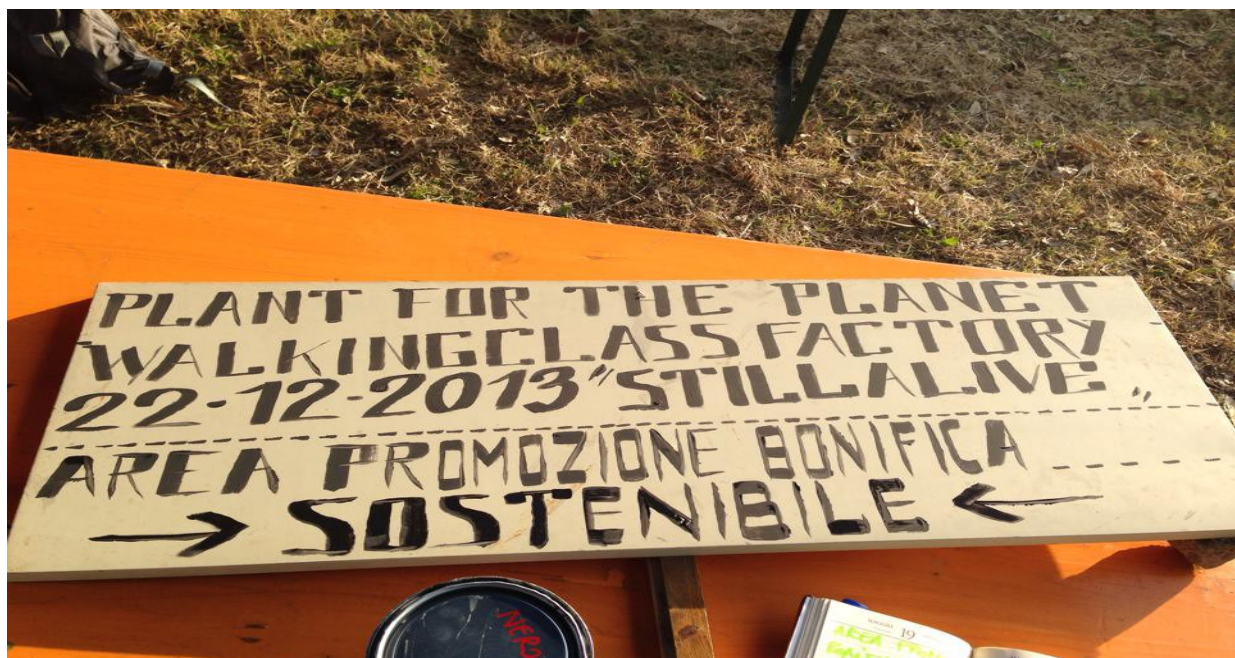 PLANT FOR THE PLANET
WALKINGCLASS FACTORY
22-12-2013 "STILL ALIVE"
AREA PROMOZIONE BONIFICA
SOSTENIBILE
NERO
19
AREA